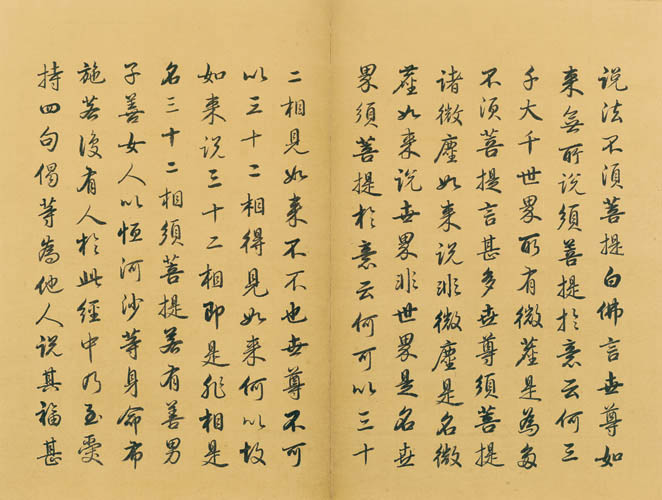 說法不須菩提白佛言世尊如
來無所說須菩提於意云何三
千大千世界所有微塵是為多
不須菩提言甚多世尊須菩提
諸微塵如來說非微塵是名微
塵如來說世界非世界是名世
界須菩提於意云何可以三十
二相見如來不不也世尊不可
以三十二相得見如來何以故
如來說三十二相即是非相是
名三十二相須菩提若有善男
子善女人以恒河沙等身命布
施若復有人於此經中乃至受
持四句偈等為他人說其福甚